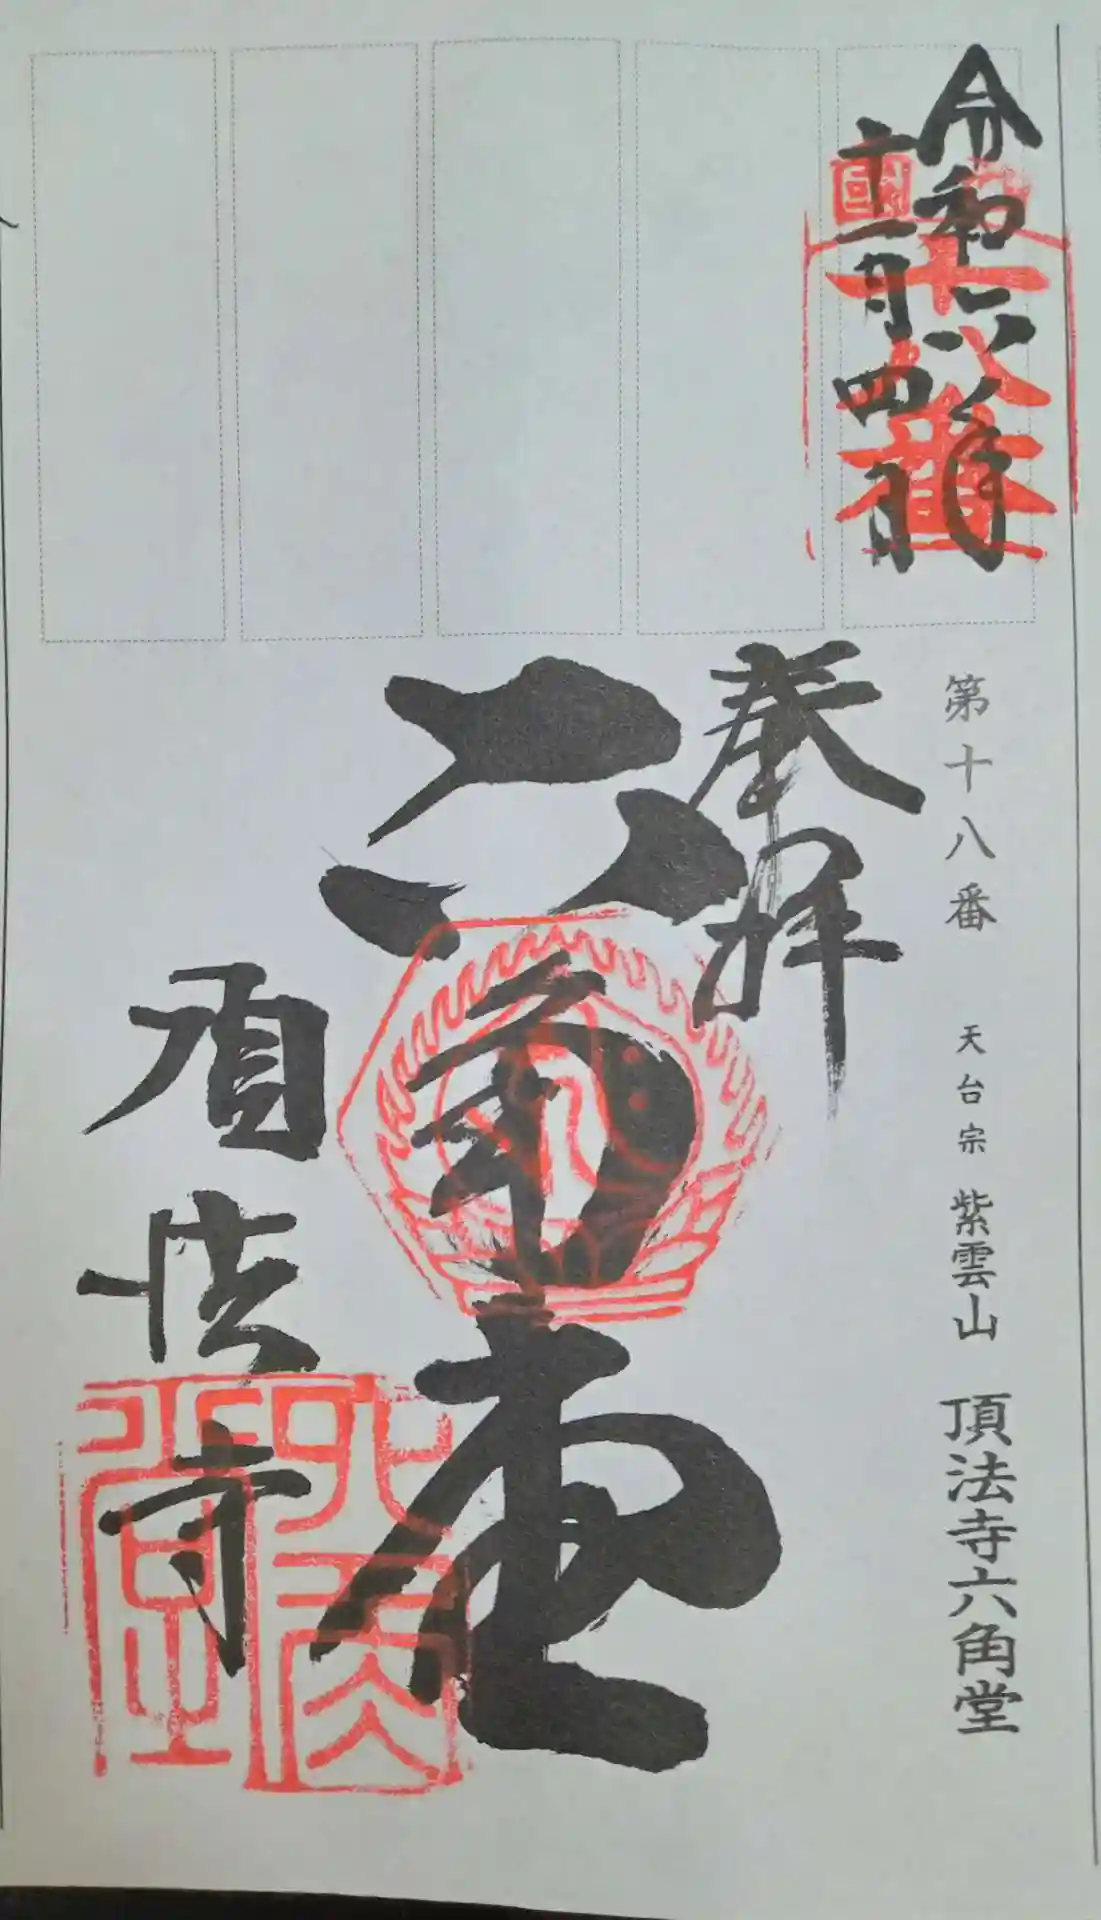 令和六年
十一月四日
第十八番 天台宗 紫雲山 頂法寺六角堂
奉拝
六角堂
頂法寺
西國
十八番
六角堂